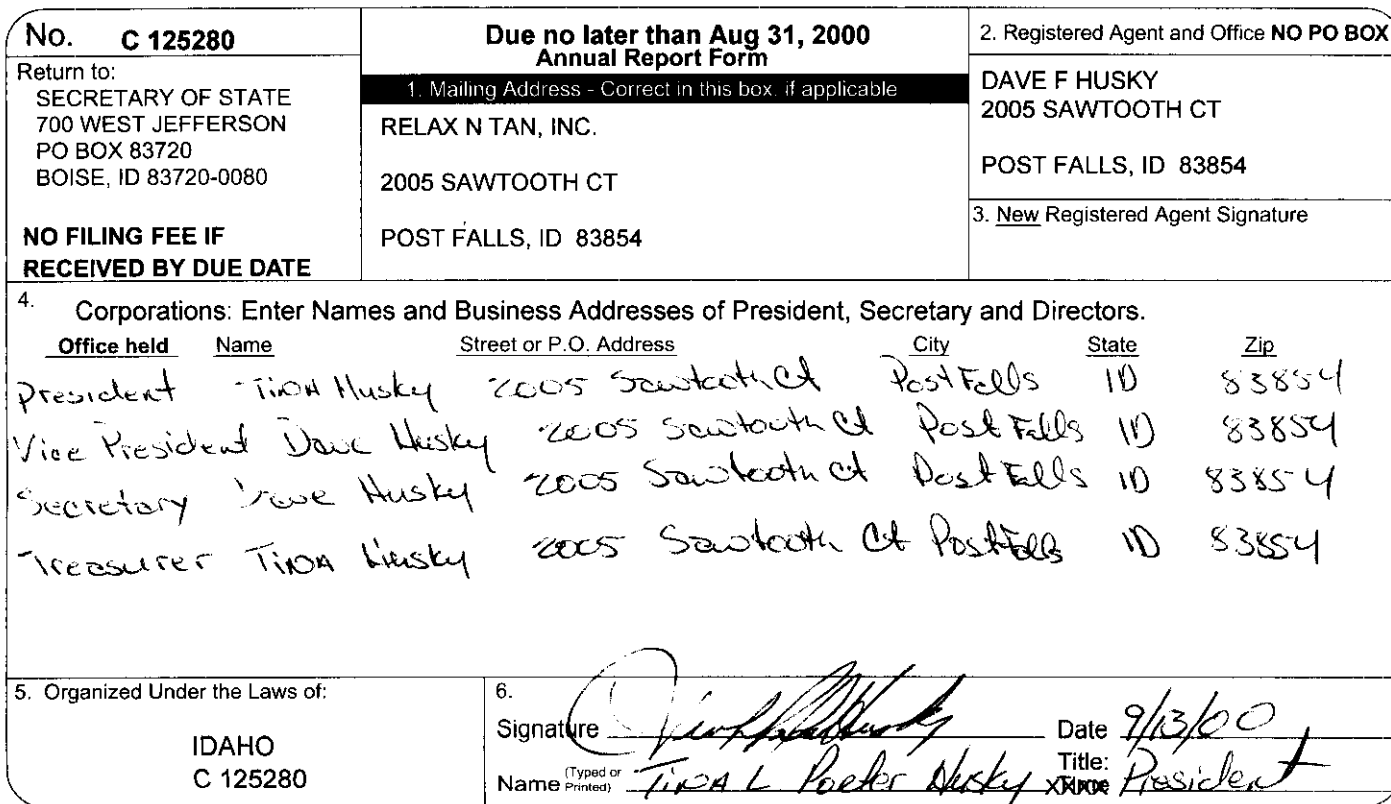 No. C 125280
Return to:
SECRETARY OF STATE
700 WEST JEFFERSON
PO BOX 83720
BOISE, ID 83720-0080
NO FILING FEE IF
RECEIVED BY DUE DATE
Due no later than Aug 31, 2000
Annual Report Form
1. Mailing Address - Correct in this box, if applicable
RELAX N TAN, INC.
2005 SAWTOOTH CT
POST FALLS, ID 83854
2. Registered Agent and Office NO PO BOX
DAVE F HUSKY
2005 SAWTOOTH CT
POST FALLS, ID 83854
3. New Registered Agent Signature
4. Corporations: Enter Names and Business Addresses of President, Secretary and Directors.
Office held Name Street or P.O. Address City State Zip
President Tina Husky 2005 Sawtooth Ct Post Falls ID 83854
Vice President Dave Husky 2005 Sawtooth Ct Post Falls ID 83854
Secretary Dave Husky 2005 Sawtooth Ct Post Falls ID 83854
Treasurer Tina Husky 2005 Sawtooth Ct Post Falls ID 83854
5. Organized Under the Laws of:
IDAHO
C 125280
6.
Signature Date 9/13/00
Name (Typed or Printed) Tina L Porter Husky Title: President